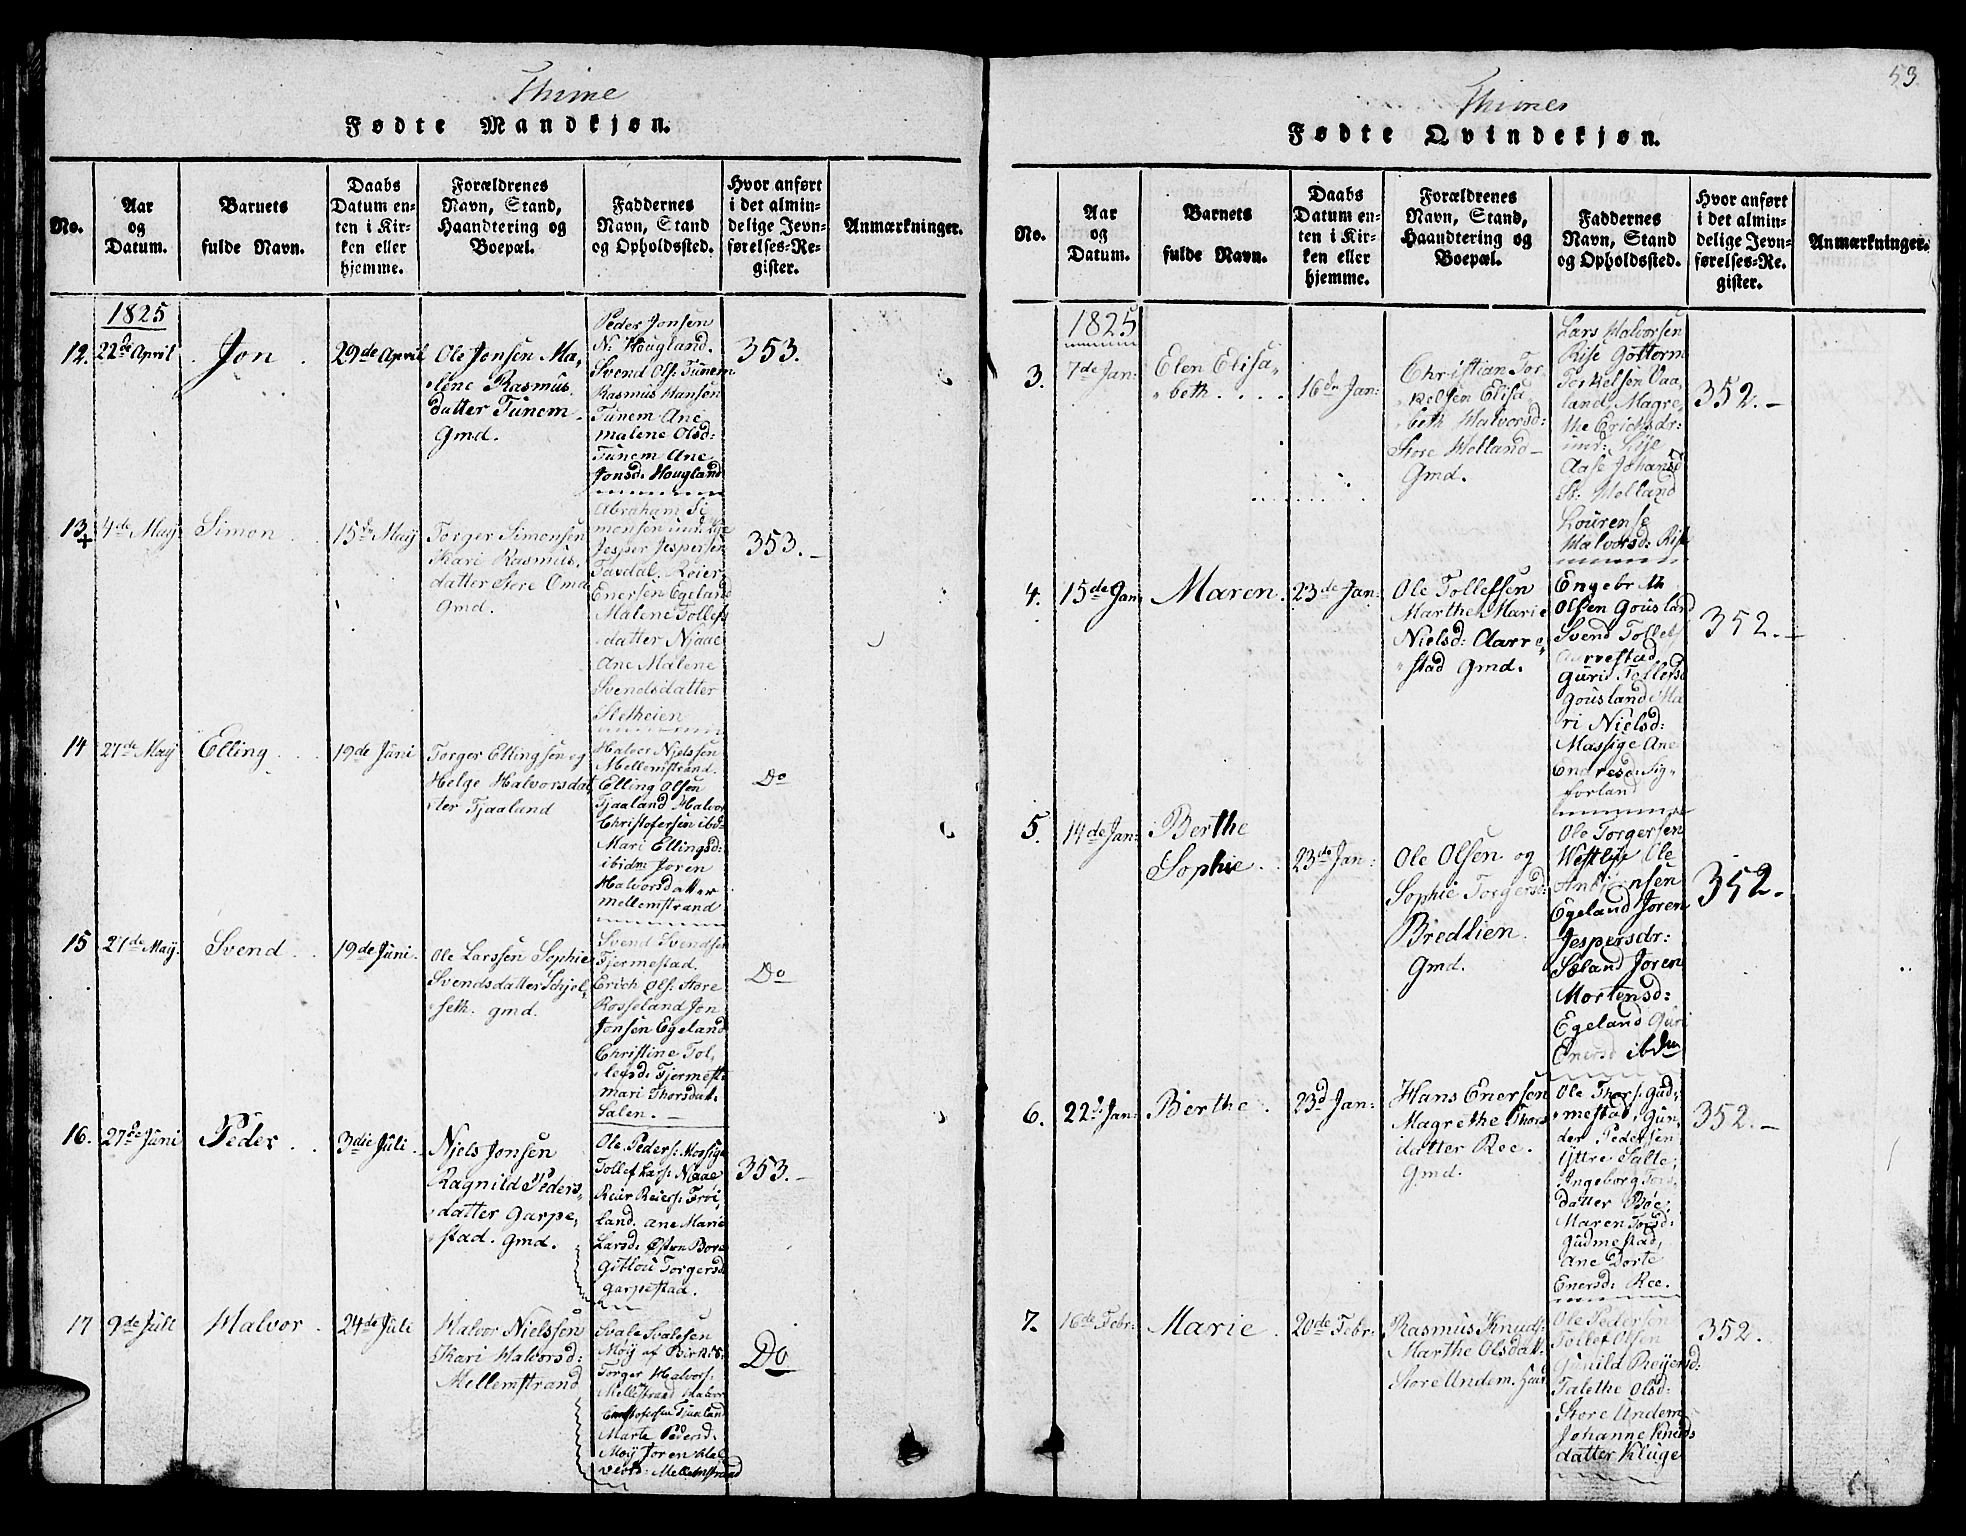 Thime
Fødte Mandkjøn.
No.
Aar
og
Datum.
Barnets
fulde Navn.
Daabs
Datum en-
ten i Kir-
ken eller
hjemme.
Forældrenes
Navn, Stand,
Haandtering og
Boepæl.
Faddernes
Navn, Stand
og Opholdssted.
Hvor anført
i det almin-
delige Jevn-
førelses-Re-
gister.
Anmærkninger.
1825
12.
22de April
Jon
29de April
Ole Jonsen Ma-
lene Rasmus
datter Tunem
Gmd.
Peder Jonsen
N: Hougland.
Svend Ols: Tunem
Rasmus Hansen
Tunem Ane
Malene Olsd:
Tunem Ane
Jonsd: Hougland
353.
13
4de May
Simon
15de May
Torger Simonsen
Kari Rasmus-
datter Store Oma
Gmd.
Abraham Si
monsen
Jesper Jespersen
Taxdal. Reier
Enersen Egeland
Malene Tollefs
datter Njaae
Ane Malene
Svendsdatter
353.
14
27de May
Elling
19de Juni
Torger Ellingsen og
Helge Halvorsdat
ter Tjaaland
Halvor Njelssen
Mellemstrand.
Elling Olsen
Tjaaland Halvor
Christofersen ibd:
Mari Ellingsd:
ibidm Joren
Halvorsdatter
Mellemstrand
Do
15
27de May.
Svend
19de Juni
Ole Larssen Sophie
Svendsdatter Schjel-
seth. gmd.
Svend Svendsen
Tjermestad.
Erich Ols: Store
Rosseland Jon
Jonsen Egeland
Christine Tol-
lefsd: Tjermest:
Mari Thorsdat:
Salen.
Do
16.
27de Juni
Peder
3die Juli
Niels Jonsen
Ragnild Peders-
datter Garpe-
stad. Gmd.
Ole Peders: Mossige
Tollef Lars: Njaae
Reier Reiers: Frøi-
land. Ane Marie
Larsd: Østre Bore
Gitlou Torgersd
Garpestad.
353.
17
9de Juli
Halvor
24de Juli
Halvor Nielssen
Kari Halvorsd:
Mellemstrand
Svale Svalesen
Moij af
Torger Halvors:
Mellemstrand Halvor
Christofersen Tjaaland
Marta Pedersd:
Moij Joren Hal
vors: Mellemstrand
Do
53
Thimes
Fødte Qvindekjøn.
No.
Aar
og
Datum.
Barnets
fulde Navn.
Daabs
Datum en-
ten i Kir-
ken eller
hjemme.
Forældrenes
Navn, Stand,
Haandtering og
Boepæl.
Faddernes
Navn, Stand
og Opholdssted.
Hvor anført
i det almin-
delige Jevn-
førelses-Re-
gister.
Anmærkninger.
1825
3.
7de Jan:
Elen Elisa-
beth
16de Jan:
Christian Tor-
kelsen Elisa-
beth Halvorsd:
Store Holland
Gmd.
Lars Halvorsen
Rise Gottorm
Torkelsen Vaa-
land Magre-
the Ericksdr:
indr: Lije
Aase Johansd
St. Holland
Lourense
Halvorsd: Rise
352.
4.
15de Jan:
Maren
23de Jan:
Ole Tollefsen
Marthe Marie
Nielsd: Aarre-
stad Gmd.
Engebr
Olsen Gousland
Svend Tollefs
Aarrestad
Guri Tollefsd
Gousland Ma
ri Nielsd:
Massige Ane
Endresd: Sig-
forland
352.
5.
14de Jan:
Berthe
Sophie
23de Jan:
Ole Olsen og
Sophie Torgersd:
Bredlien.
Gmd.
Ole Torgersen
Westlije Ole
Egeland Joren
Jespersdr:
Sæland Joren
Mortensd:
Egeland Guri
Enersd ibdm
352.
6.
22de Jan:
Berthe
23d Jan:
Hans Enersen
Magrethe Thors
datter Ree.
Gmd.
Ole Thors: Gud-
mestad, Gun-
der Pedersen
Yttre Salte,
Ingeborg Tors
datter Bøe,
Maren Torsd:
Gudmestad,
Ane Dorte
Enersd: Ree.
352.
7.
16de Febr:
Marie
20de Febr:
Rasmus Knuds:
Marthe Olsdat:
Store Undem.
Ole Pedersen
Tollef Olsen
Gunild Reijersd:
Talethe Olsd:
Store Undem
Johanne Knuds
datter Kluge
352.